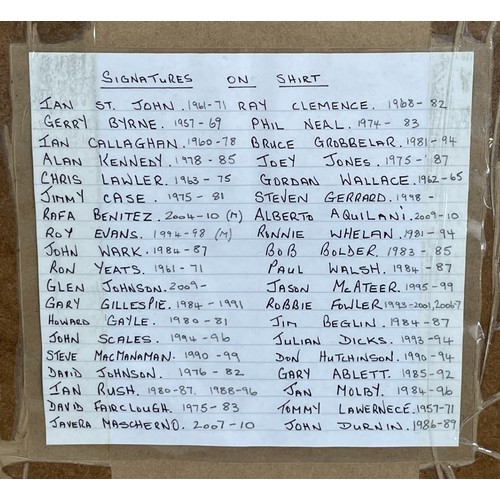 SIGNATURES ON SHIRT
IAN ST. JOHN. 1961-71 RAY CLEMENCE. 1968-82
GERRY BYRNE. 1957-69 PHIL NEAL. 1974-83
IAN CALLAGHAN. 1960-78 BRUCE GROBBELAR. 1981-94
ALAN KENNEDY. 1978-85 JOEY JONES. 1975-'87
CHRIS LAWLER. 1963-75 GORDAN WALLACE. 1962-65
JIMMY CASE. 1975-81 STEVEN GERRARD. 1998-
RAFA BENITEZ. 2004-10 (M) ALBERTO AQUILANI. 2009-10
ROY EVANS. 1994-98 (M) RONNIE WHELAN. 1981-94
JOHN WARK. 1984-87 BOB BOLDER. 1983-85
RON YEATS. 1961-71 PAUL WALSH. 1984-87
GLEN JOHNSON. 2009- JASON McATEER. 1995-99
GARY GILLESPIE. 1984-1991 ROBBIE FOWLER 1993-2001, 2006-7
HOWARD GAYLE. 1980-81 JIM BEGLIN. 1984-87
JOHN SCALES. 1994-96 JULIAN DICKS. 1993-94
STEVE MACMANAMAN. 1990-99 DON HUTCHINSON. 1990-94
DAVID JOHNSON. 1976-82 GARY ABLETT. 1985-92
IAN RUSH. 1980-87. 1988-96 JAN MOLBY. 1984-96
DAVID FAIRCLOUGH. 1975-83 TOMMY LAWERNECE. 1957-71
JAVERA MASCHERNO. 2007-10 JOHN DURNIN. 1986-89